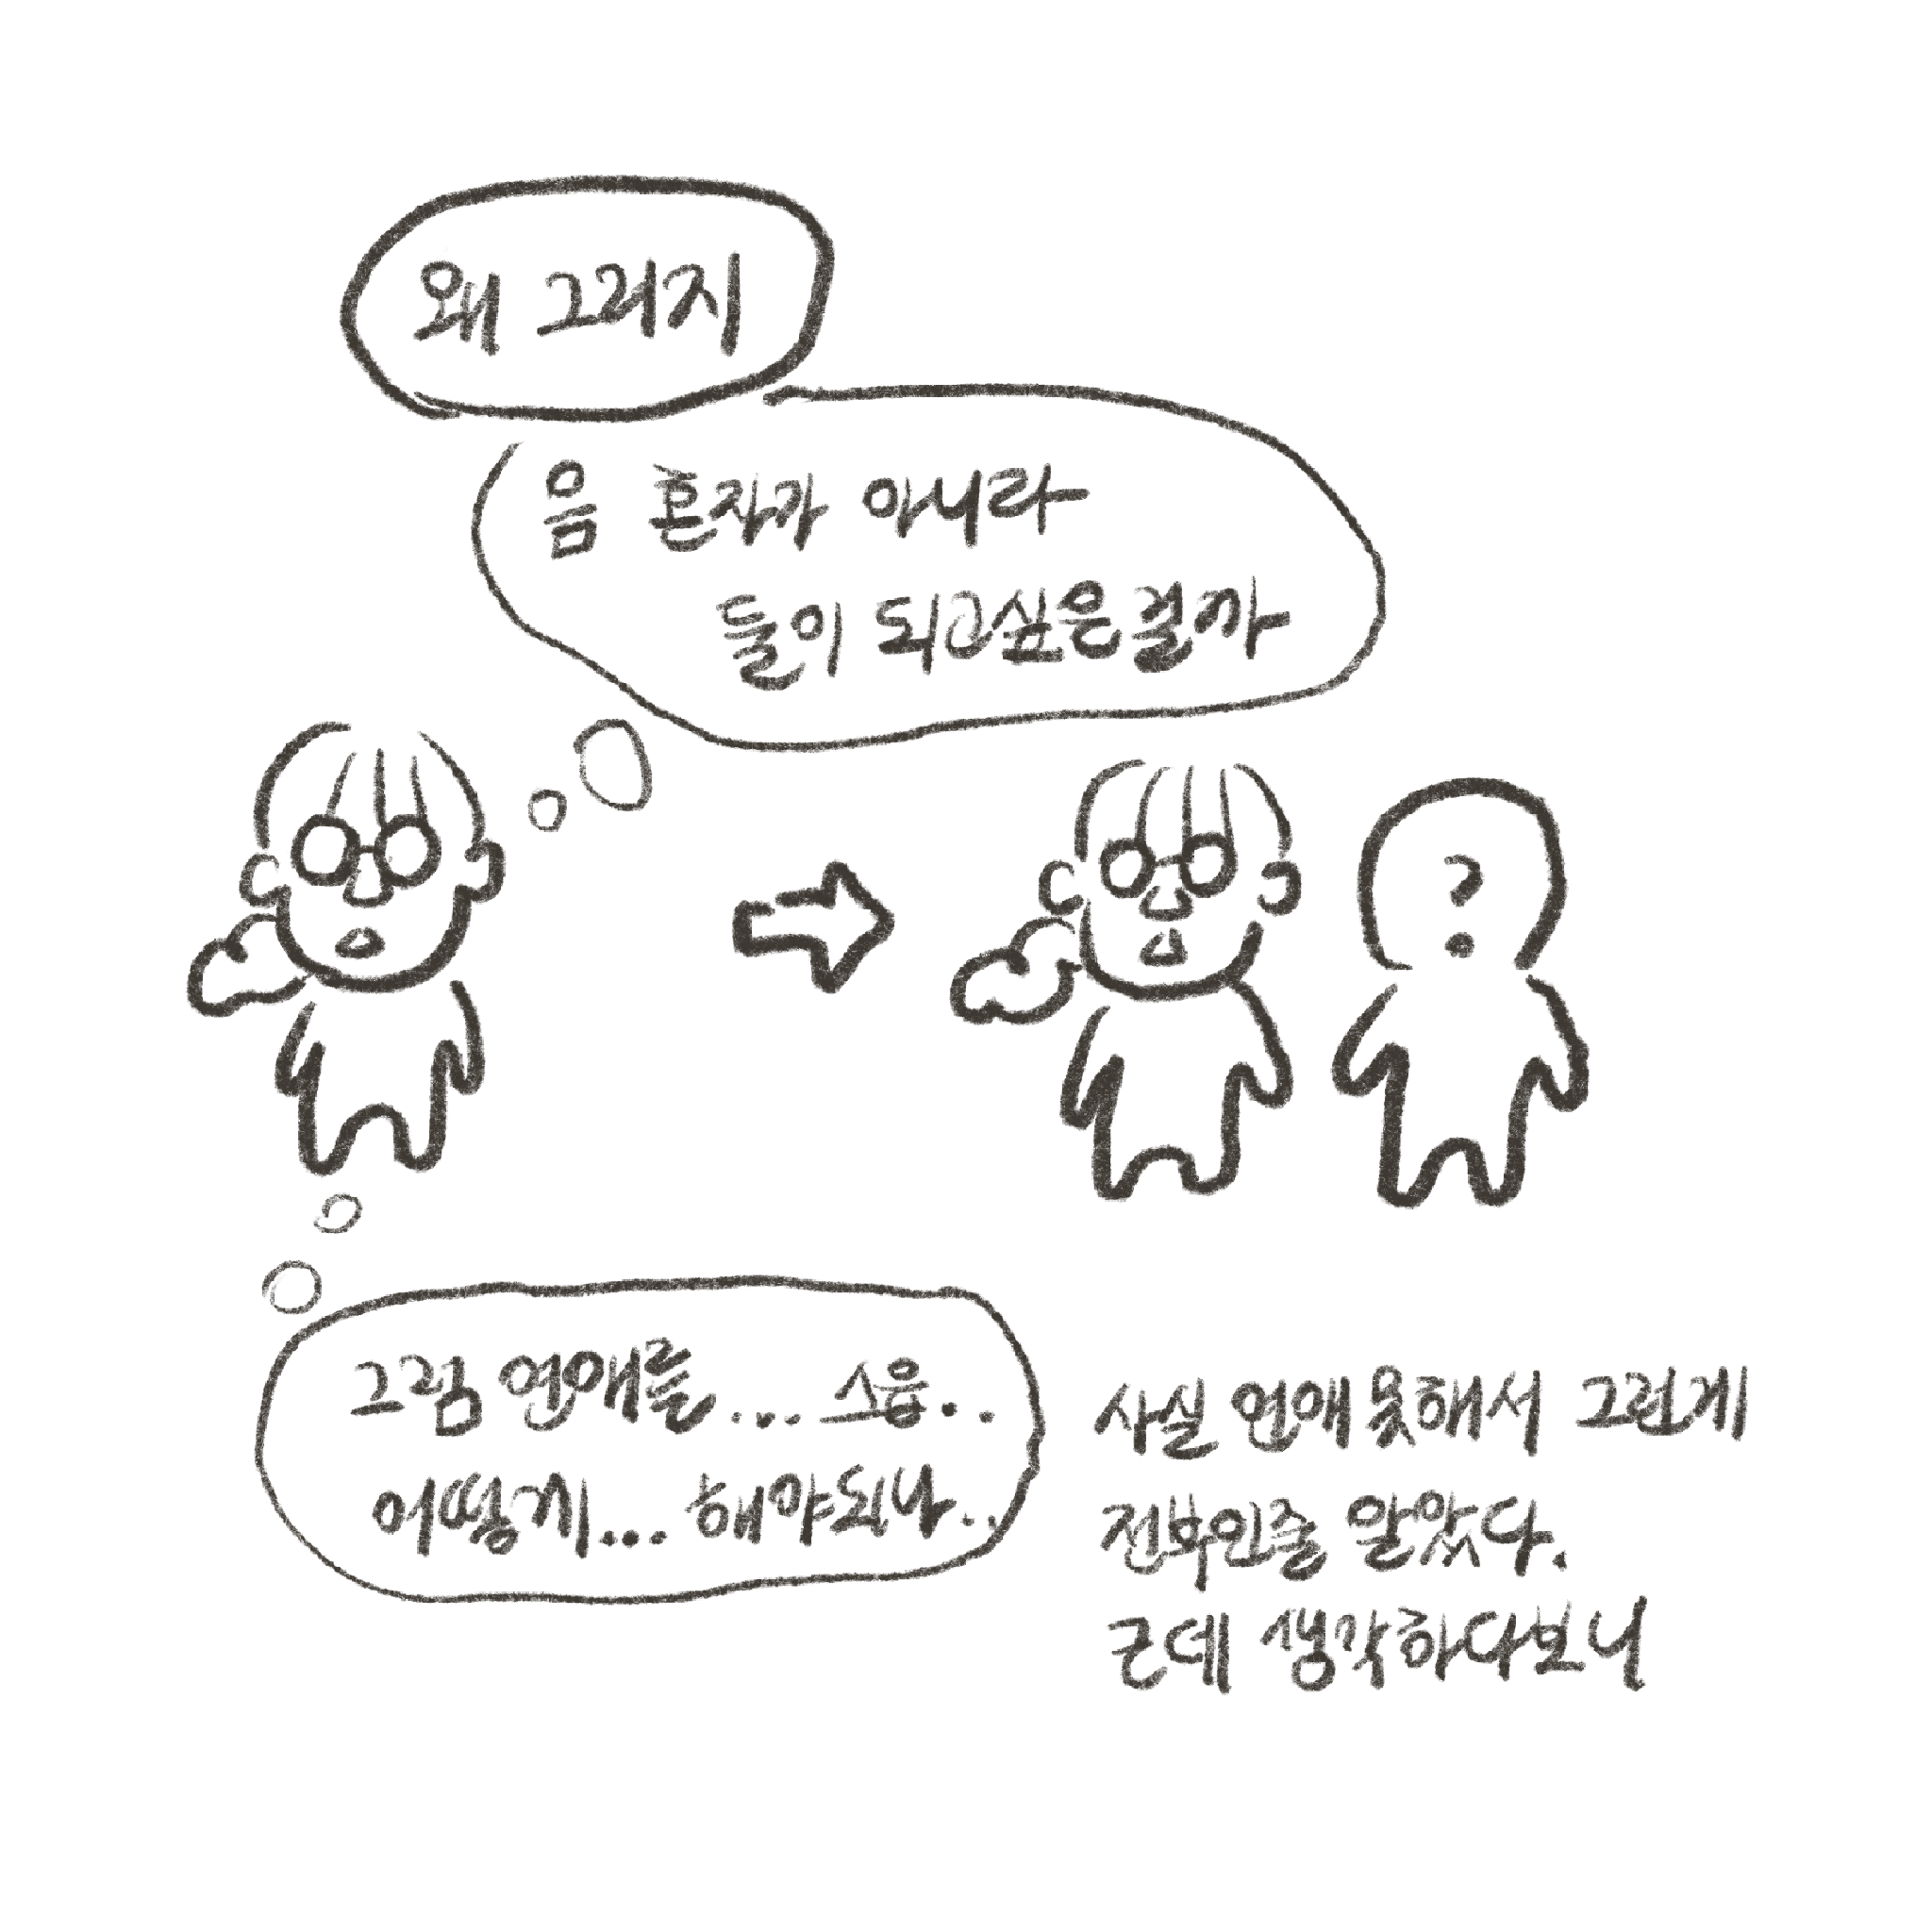 왜 그러지
음 혼자가 아니라
둘이 되고싶은걸까
?
그럼 연애를... 스읍..
어떻게... 해야되나..
사실 연애 못해서 그런게
전부인줄 알았다.
근데 생각하다보니